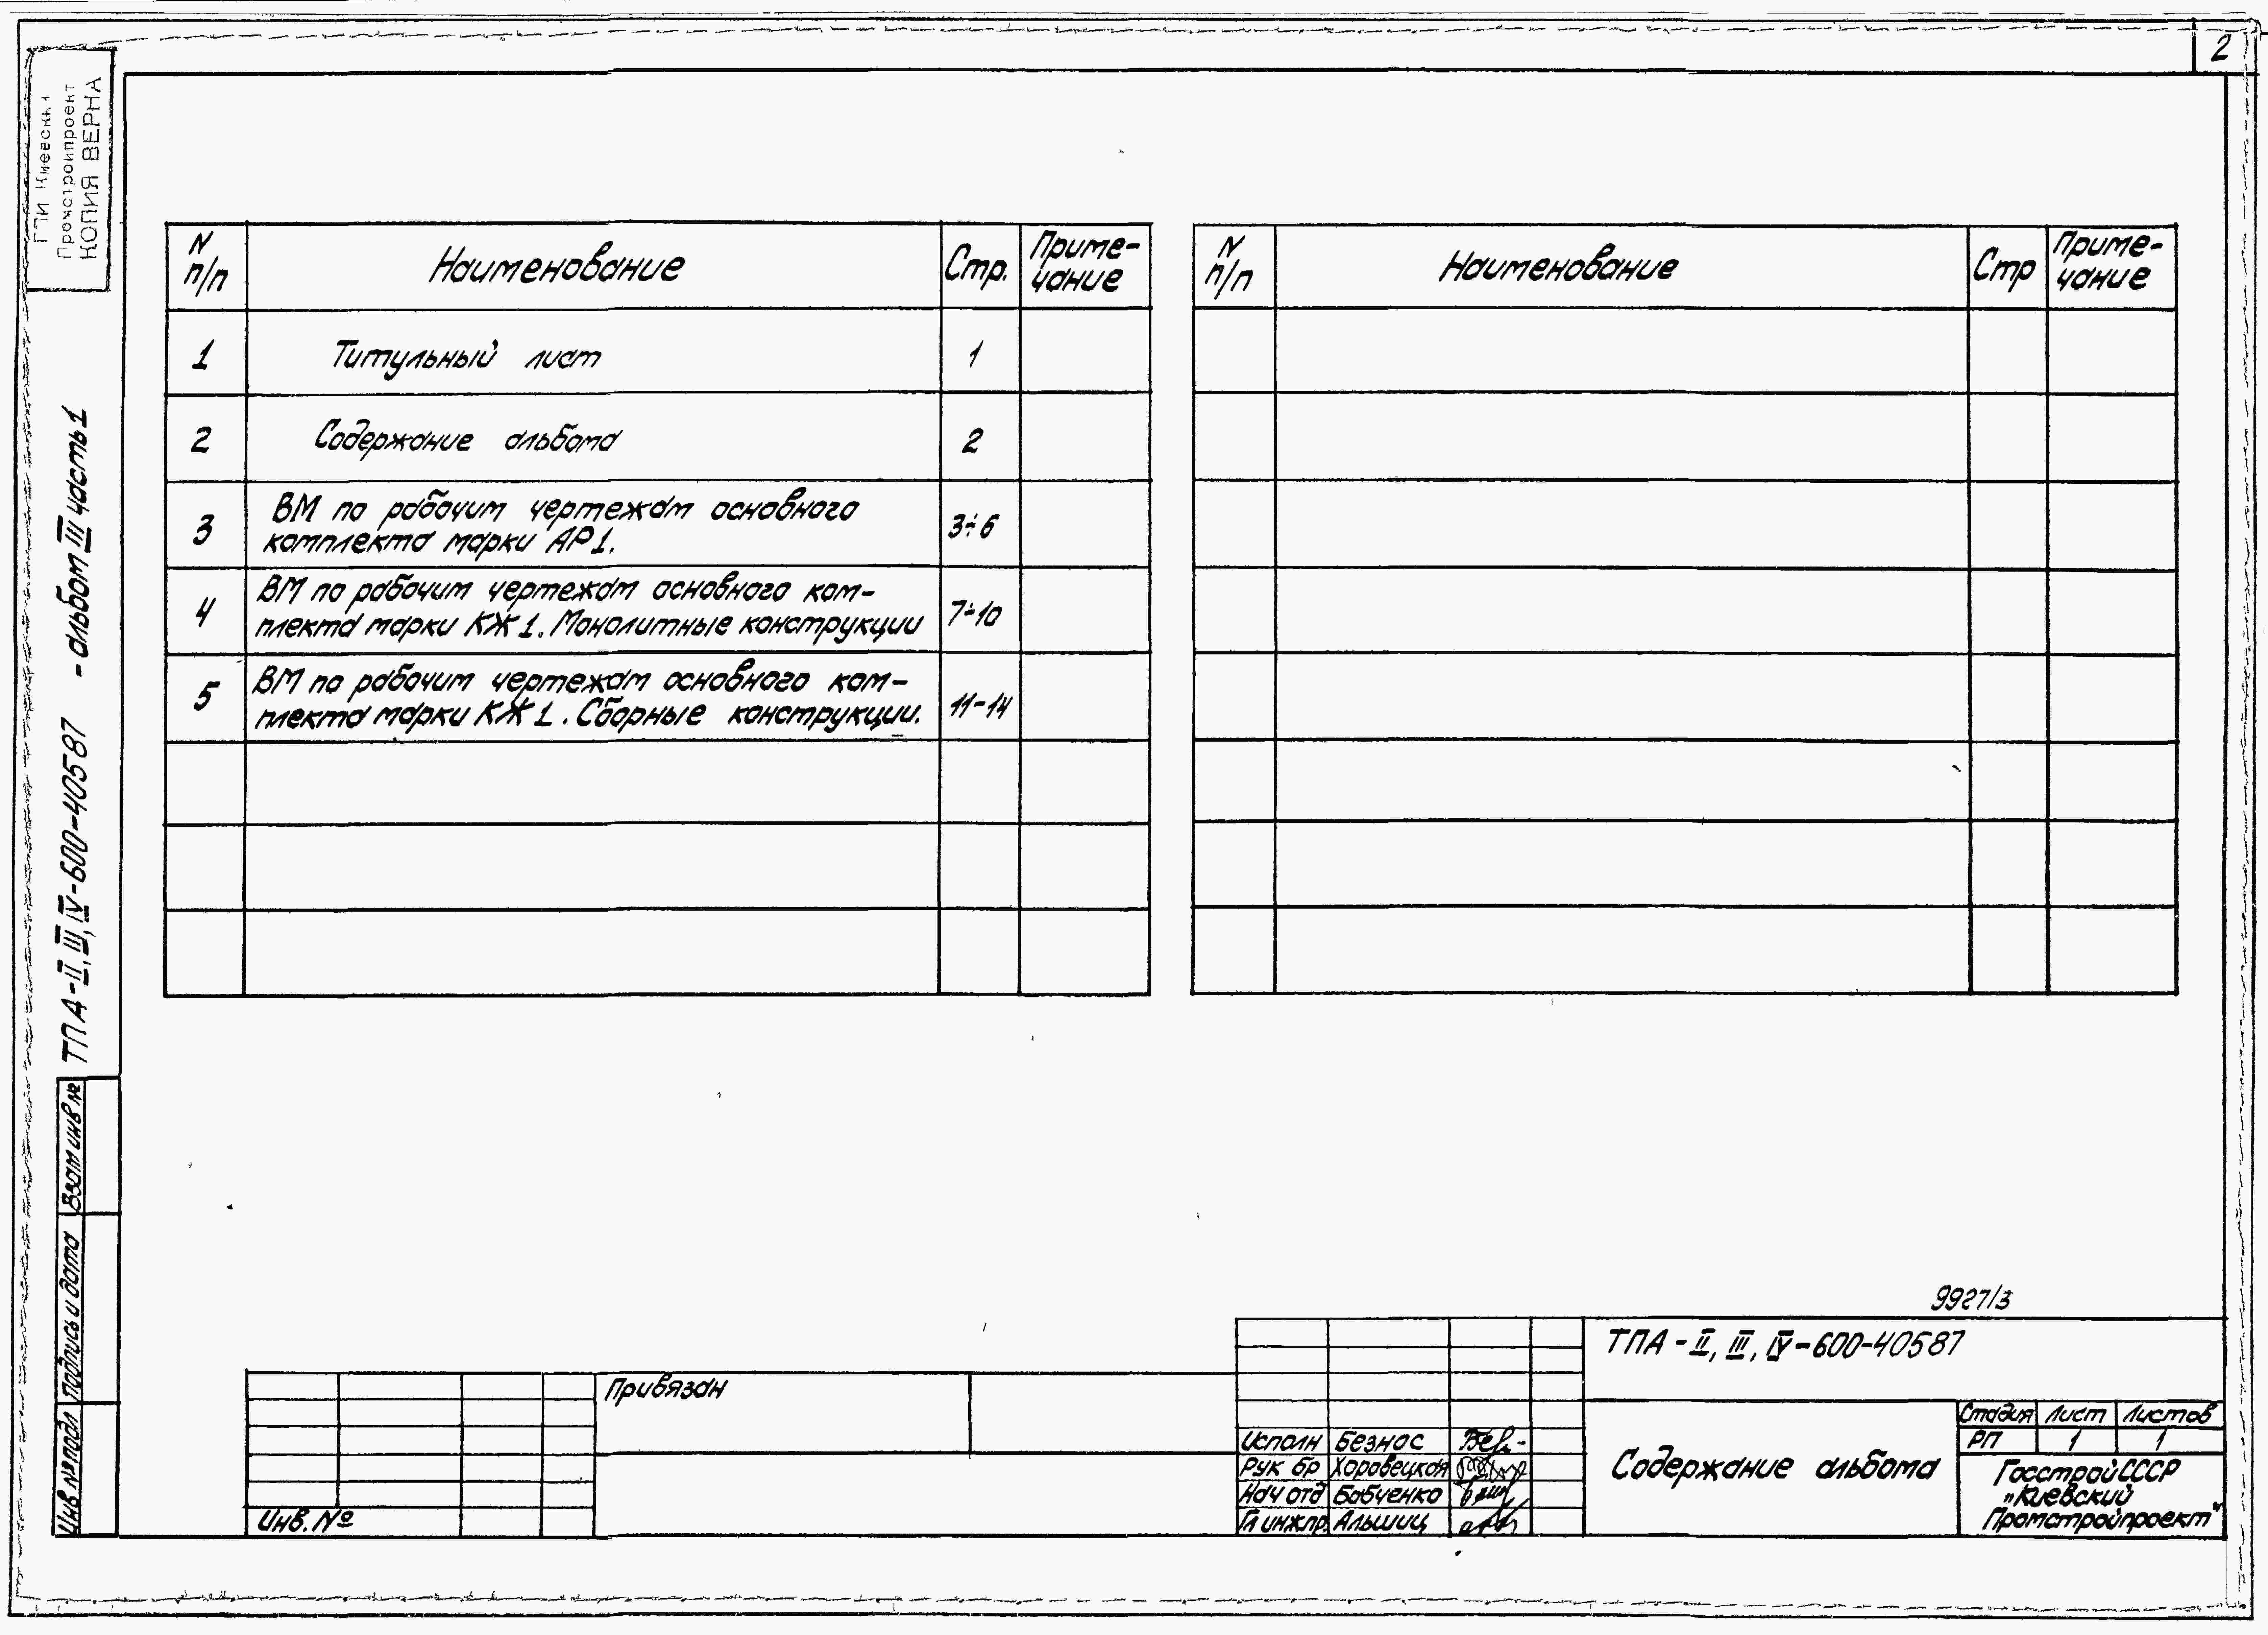 2
ГПИ Киевский
Промстройпроект
КОПИЯ ВЕРНА
ТПА-II, III, IV-600-40587 - альбом III часть 1
N п/п Наименование Стр. Приме-
чание
1 Титульный лист 1
2 Содержание альбома 2
3 ВМ по рабочим чертежам основного
комплекта марки АР1. 3÷6
4 ВМ по рабочим чертежам основного ком-
плекта марки КЖ1. Монолитные конструкции 7÷10
5 ВМ по рабочим чертежам основного ком-
плекта марки КЖ1. Сборные конструкции. 11-14
N п/п Наименование Стр Приме-
чание
Взам инв №
Подпись и дата
Инв № подл
9927/3
ТПА-II, III, IV-600-40587
Привязан
Инв. №
Исполн Безнос
Рук бр Хоровецкая
Нач отд Бабченко
Гл инж пр. Альшиц
Содержание альбома
Стадия Лист Листов
РП 1 1
Госстрой СССР
„Киевский
Промстройпроект"